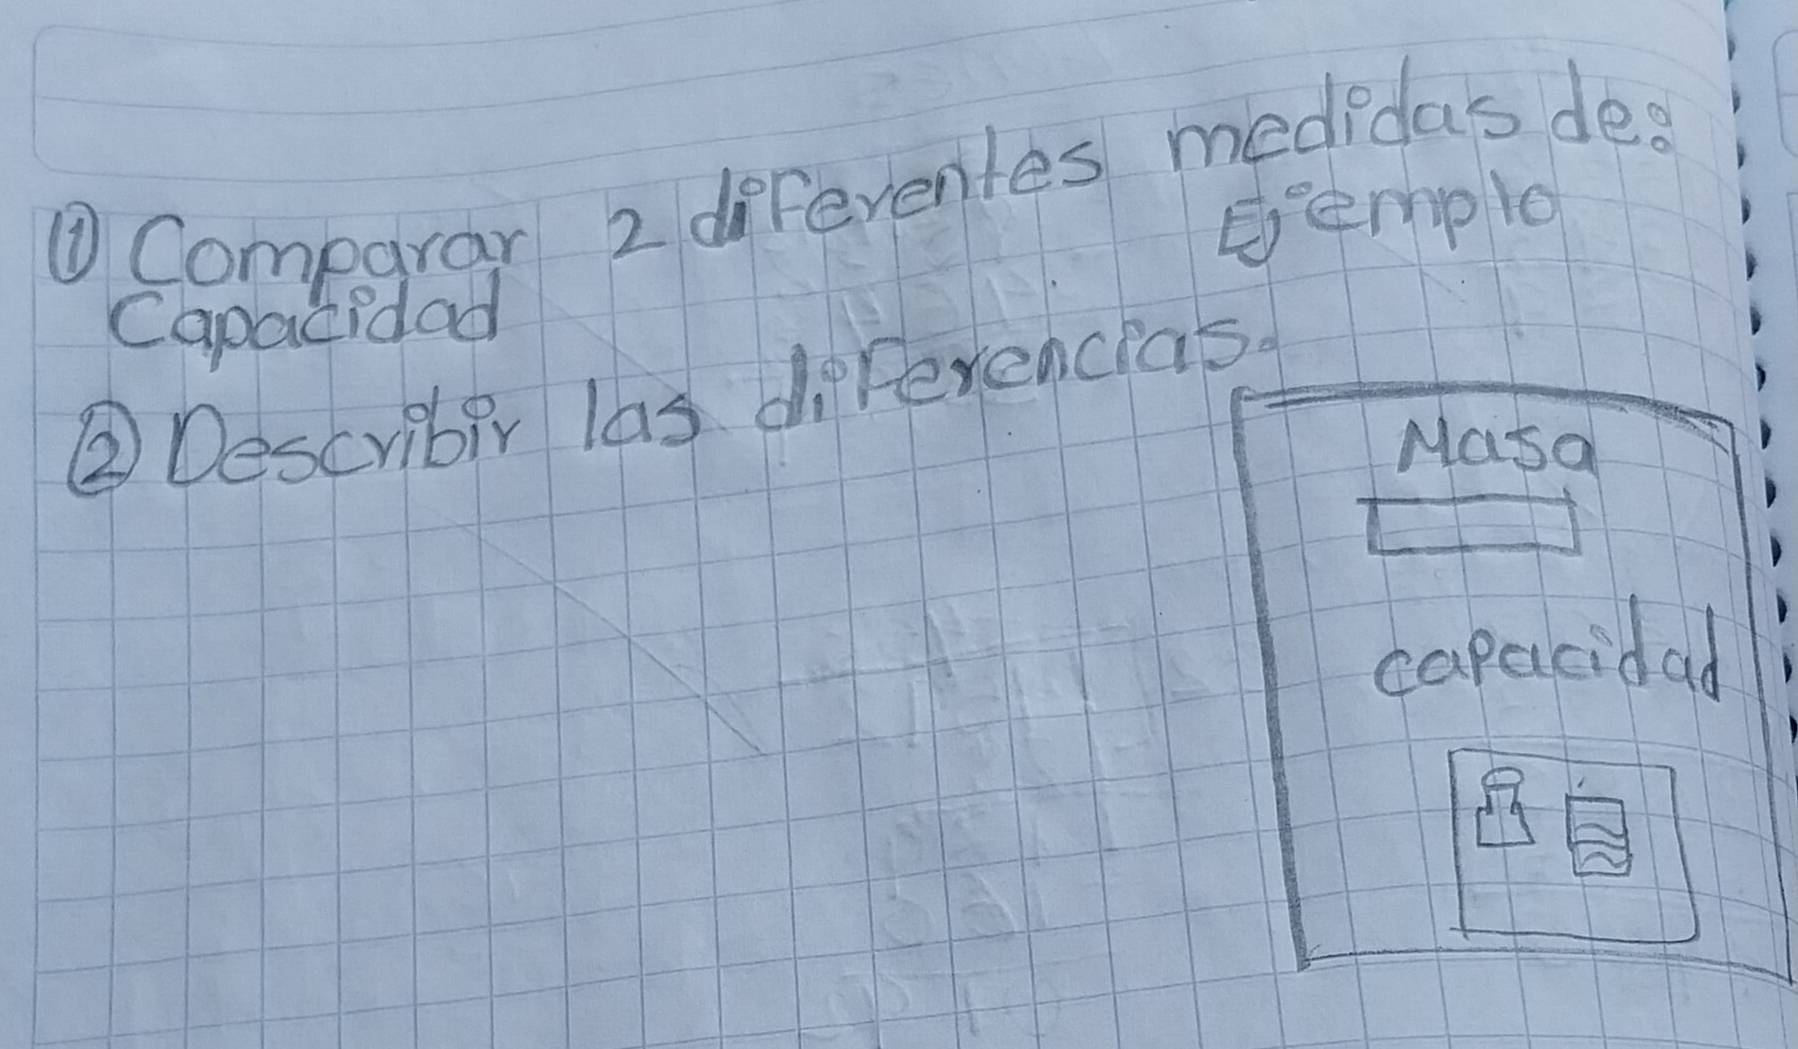 ① Comparar 2 diferentes medidas de:
Capacidad
Ejemplo
② Describir las diferencias.
Masa
capacidad